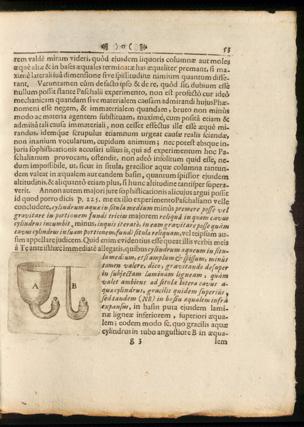 )o( 53
rem valdè miram videri, quòd ejusdem liquoris columnæ aut moles
æquè altæ & in bases æquales terminatæ has æqualiter premant, si ma-
ximè laterali suâ dimensione sive spissitudine nimium quantum diffe-
rant. Veruntamen cùm de facto ipso & de re, quòd sit, dubium esse
nullum possit stante Paschalii experimento, non est profectò cur ideò
mechanicam quandam sive materialem causam admirandi hujus Phæ-
nomeni esse negem, & immaterialem quandam, bruto non minùs
modo ac materia agentem substituam, maximè, cùm posita etiam &
admissa tali causa immateriali, non cesset effectus ille esse æquè mi-
randus, idemque scrupulus etiamnum urgeat causæ realis scienda,
non inanium vocularum, cupidum animum; nec potest absque in-
juria sophisticationis accusari ullius is, qui ad experimentum hoc Pa-
schalianum provocans, ostendit, non adeò insolitum quid esse, ne-
dum impossibile, ut sicut in situla, gracilior aquæ columna tantun-
dem valeat in æqualem aut eandem basin, quantum spissior ejusdem
altitudinis, & aliquantò etiam plus, si hunc altitudine tantisper supera-
verit. Annon autem majori jure sophisticationis alicujus argui possit
id quod porrò dicis p. 225. metu illo experimento Paschaliano velle
concludere, cylindrum aquæ in situla medium minùs premere posse vel
gravitare in portionem fundi triclis majorem reliquâ in quam cavus
cylindrus incumbit,
sum appellare judicem. Quid enim evidentius esse queat illis verbis meis
à Te ante istuc immediatè allegatis, quibus cylindrum aqueum in situ-
la medium, etsi amplum & spissum, minùs
tamen valere, dico, gravitando desuper
in subjectam laminam ligneam, quàm
valet ambiens ad situlæ latera cavus a-
quæ cylindrus, gracilis quidem superiùs,
sed tandem (NB) in basin æqualem infrà
expansus, in basin puta ejusdem lami-
næ ligneæ inferiorem, superiori æqua-
lem; eodem modo sc. quo gracilis aquæ
cylindrus in tubo angustiore B in æqua-
A B
g 3 lem